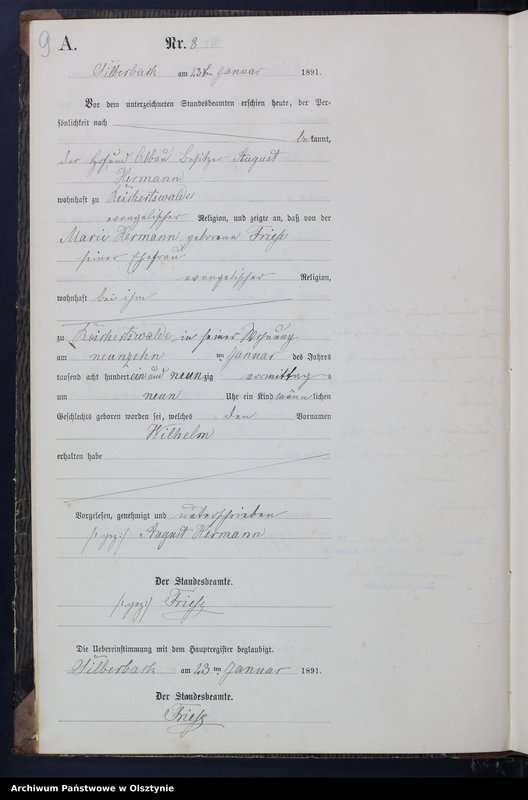 9 A. Nr. 8
Silberbach am 23ten Januar 1891.
Vor dem unterzeichneten Standesbeamten erschien heute, der Per-
sönlichkeit nach
bekannt,
der Besitzer August
Hermann
wohnhaft zu Reichertswalde
evangelischer Religion, und zeigte an, daß von der
Marie Hermann geborene Friese
seiner Ehefrau
evangelischer Religion,
wohnhaft bei ihm
zu Reichertswalde in seiner Wohnung
am neunzehn ten Januar des Jahres
tausend acht hundert ein und neunzig vormittag s
um neun Uhr ein Kind männlichen
Geschlechts geboren worden sei, welches den Vornamen
Wilhelm
erhalten habe
Vorgelesen, genehmigt und unterschrieben
August Hermann
Der Standesbeamte.
Friese
Die Uebereinstimmung mit dem Hauptregister beglaubigt.
Silberbach am 23 ten Januar 1891.
Der Standesbeamte.
Friese
Archiwum Państwowe w Olsztynie